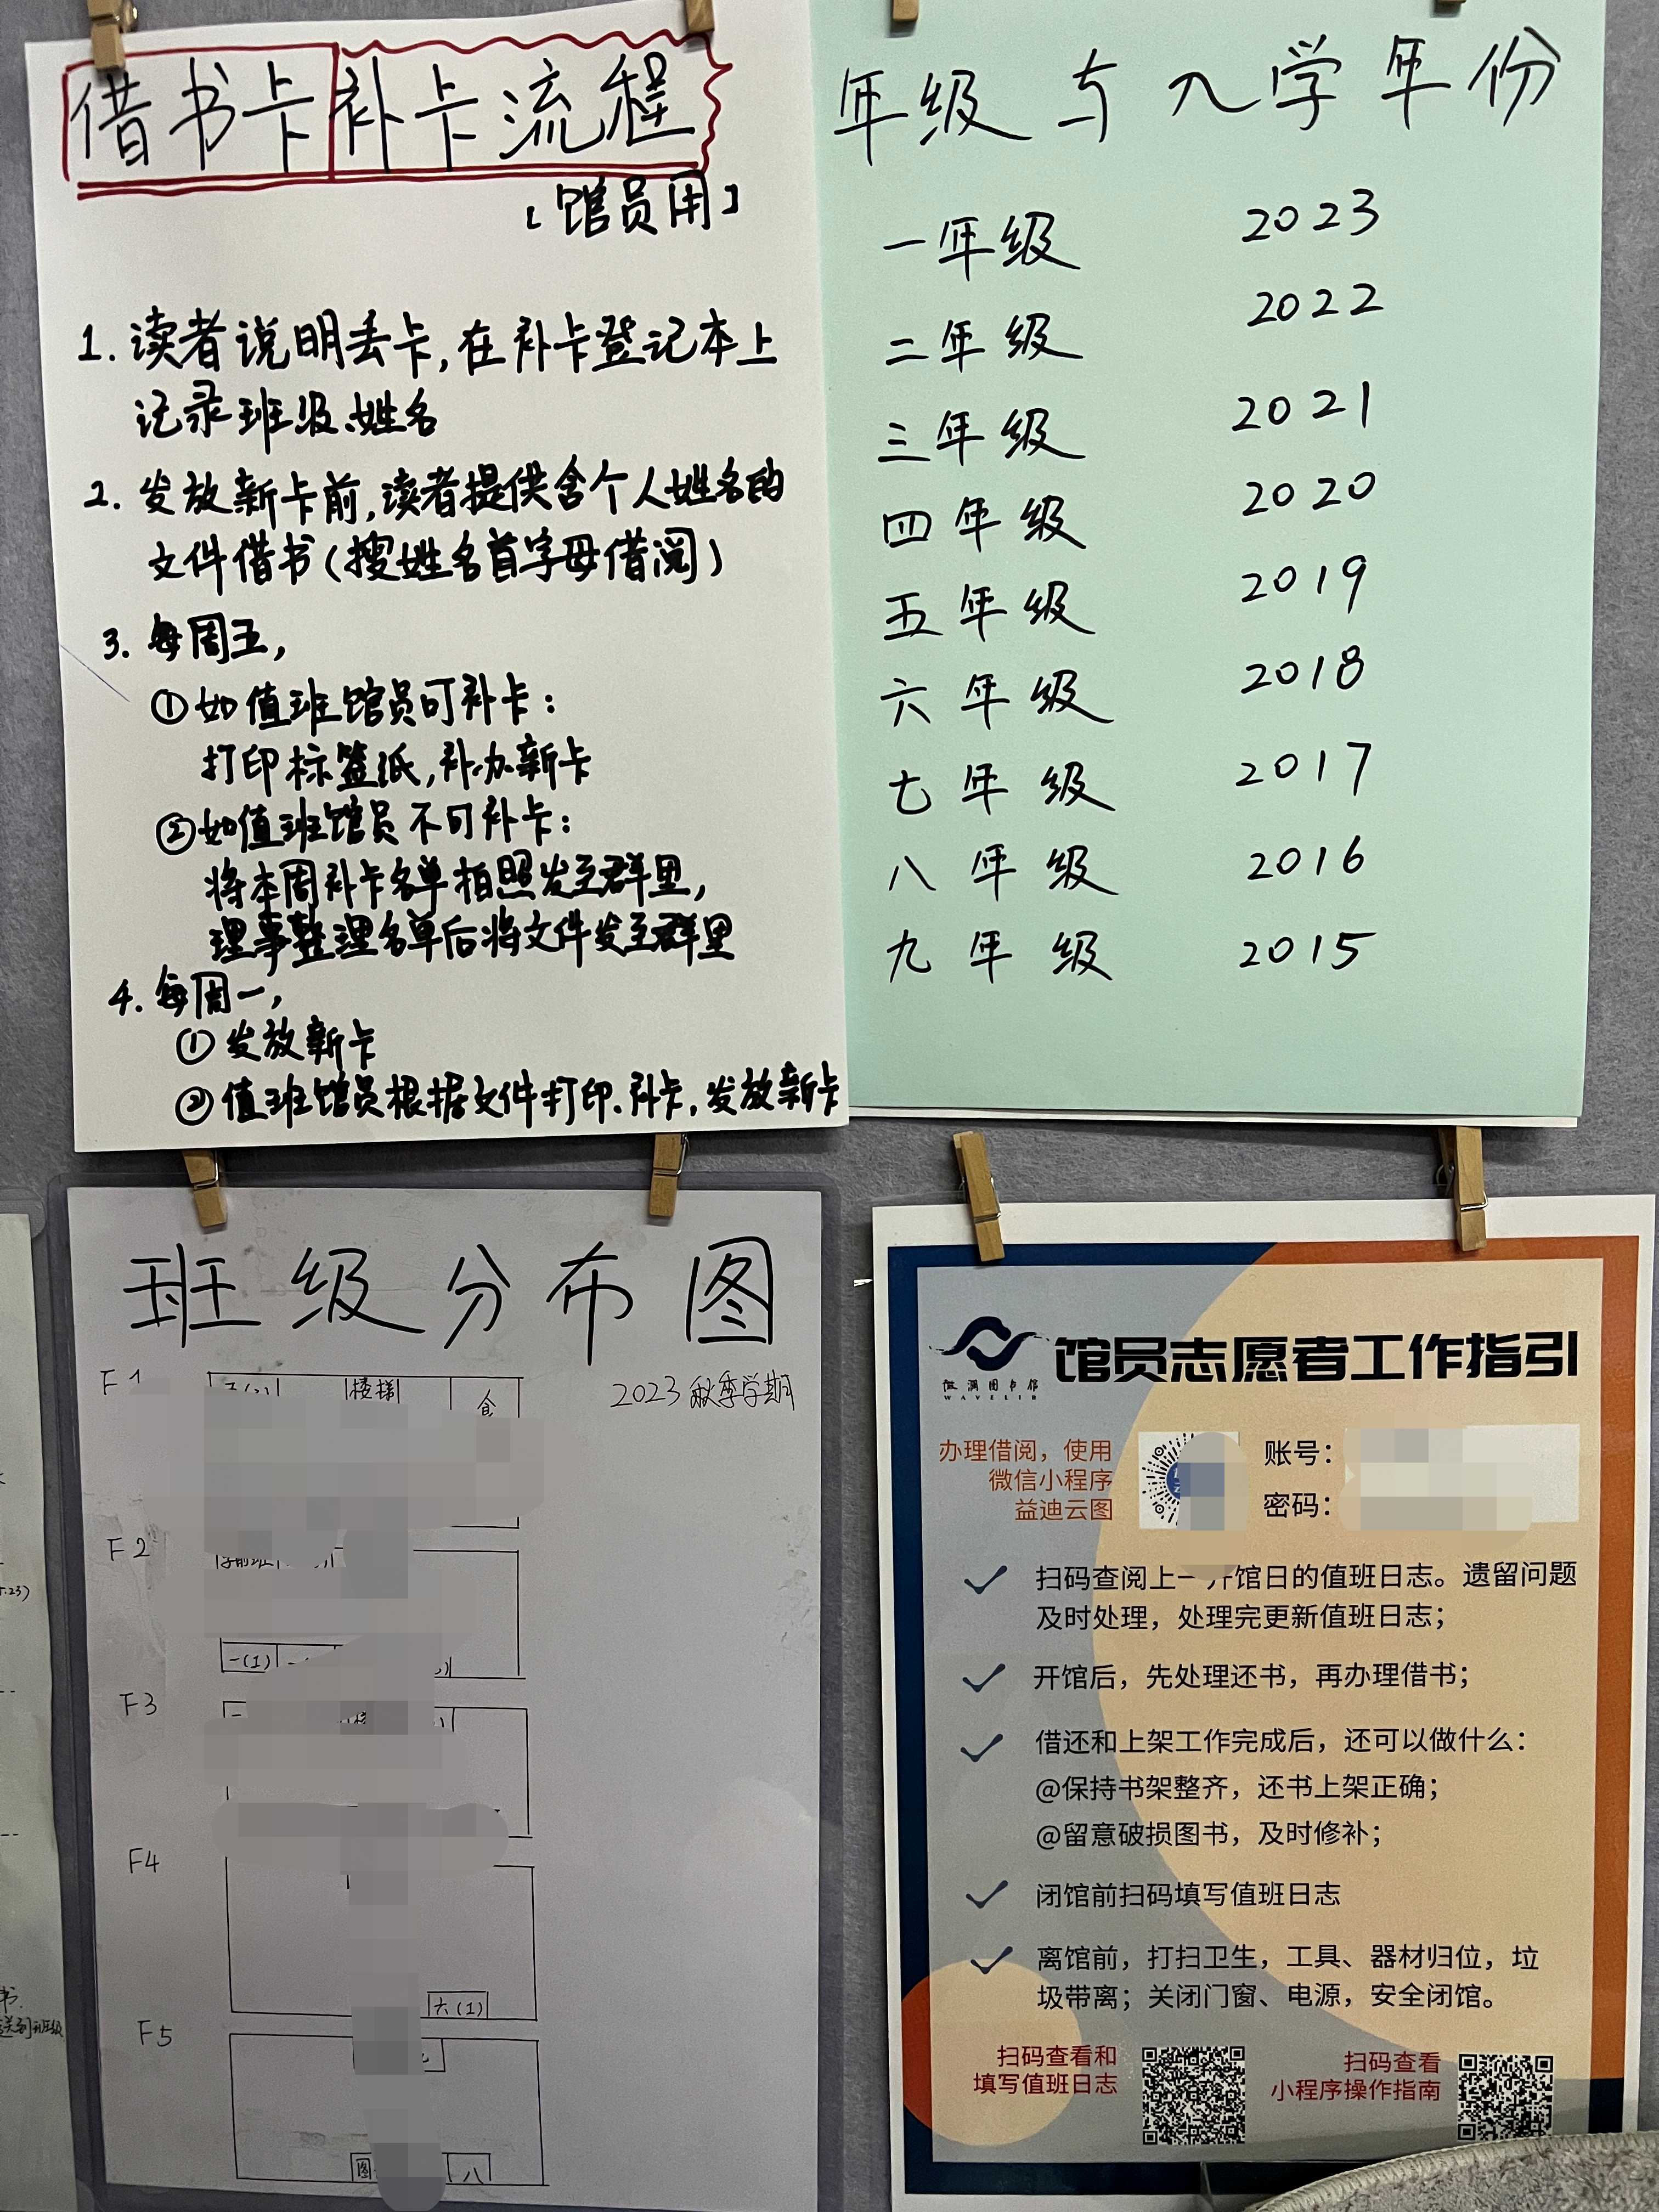 借书卡补卡流程
[馆员用]
1. 读者说明丢卡,在补卡登记本上
记录班级、姓名
2. 发放新卡前,读者提供含个人姓名的
文件借书(搜姓名首字母借阅)
3. 每周五,
①如值班馆员可补卡:
打印标签纸,补办新卡
②如值班馆员不可补卡:
将本周补卡名单拍照发至群里,
理事整理名单后将文件发至群里
4. 每周一,
①发放新卡
②值班馆员根据文件打印、补卡,发放新卡
年级与入学年份
一年级 2023
二年级 2022
三年级 2021
四年级 2020
五年级 2019
六年级 2018
七年级 2017
八年级 2016
九年级 2015
班级分布图
2023秋季学期
F1
楼梯
食
F2
学前班
一(1)
F3
F4
六(1)
F5
图
八
馆员志愿者工作指引
微澜图书馆
WAVELIB
办理借阅，使用
微信小程序
益迪云图
账号：
密码：
扫码查阅上一开馆日的值班日志。遗留问题
及时处理，处理完更新值班日志；
开馆后，先处理还书，再办理借书；
借还和上架工作完成后，还可以做什么：
@保持书架整齐，还书上架正确；
@留意破损图书，及时修补；
闭馆前扫码填写值班日志
离馆前，打扫卫生，工具、器材归位，垃
圾带离；关闭门窗、电源，安全闭馆。
扫码查看和
填写值班日志
扫码查看
小程序操作指南
书.
送到班级